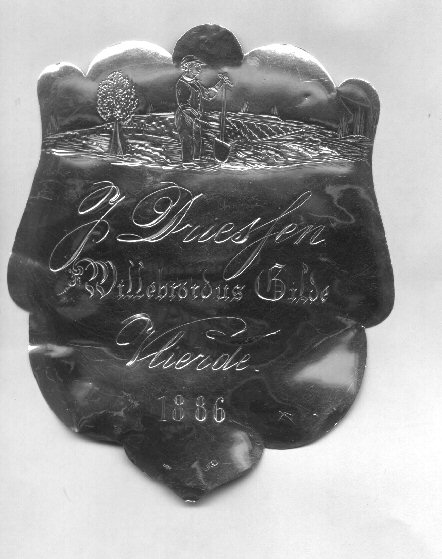 J Driessen
St Willebrordus Gilde
Vlierde.
1886